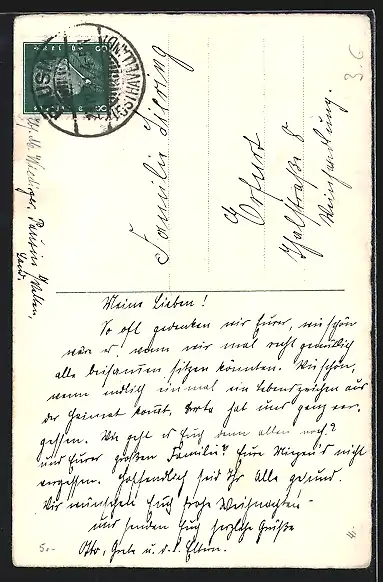 Familie Siering
Erfurt
Weinhandlung.
3.6
Pausin
Land.
Meine Lieben!
So oft gedenken wir Eurer, wie schön
wäre es, wenn wir mal recht gemütlich
alle beisamen sitzen könnten. Wie schön,
wenn endlich einmal ein Lebenszeichen aus
der Heimat komt. hat uns ganz ver-
gessen. Wie geht es Euch denn allen noch?
und Eurer großen Familie? Eure nicht
vergessen. Hoffendlich seid Ihr Alle gesund.
Wir wünschen Euch frohe Weihnachten
und senden Euch herzliche Grüße
Otto, Grete u. d. l. Eltern.
5.-